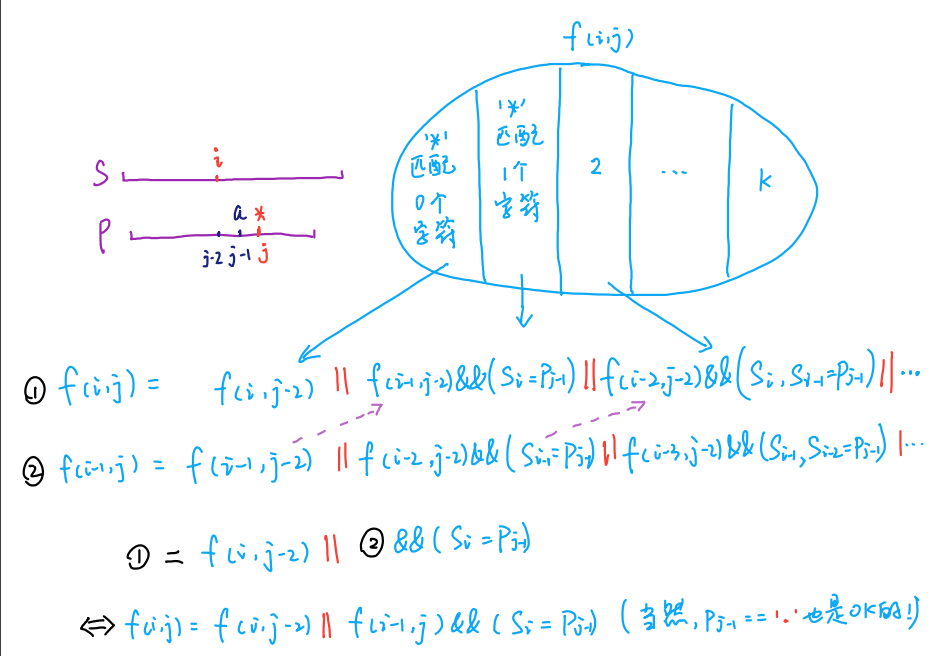 f(i,j)
'*'
匹配
0个
字符
'*'
匹配
1个
字符
2
...
k
S
i
P
a *
j-2 j-1 j
① f(i,j) = f(i,j-2) || f(i-1,j-2)&&(Si=Pj-1) || f(i-2,j-2)&&(Si,Si-1=Pj-1) || ...
② f(i-1,j) = f(i-1,j-2) || f(i-2,j-2)&&(Si-1=Pj-1) || f(i-3,j-2)&&(Si-1,Si-2=Pj-1) | ...
① = f(i,j-2) || ② &&(Si=Pj-1)
⇔ f(i,j) = f(i,j-2) || f(i-1,j)&&(Si=Pj-1) (当然,Pj-1=='.'也是OK的!)